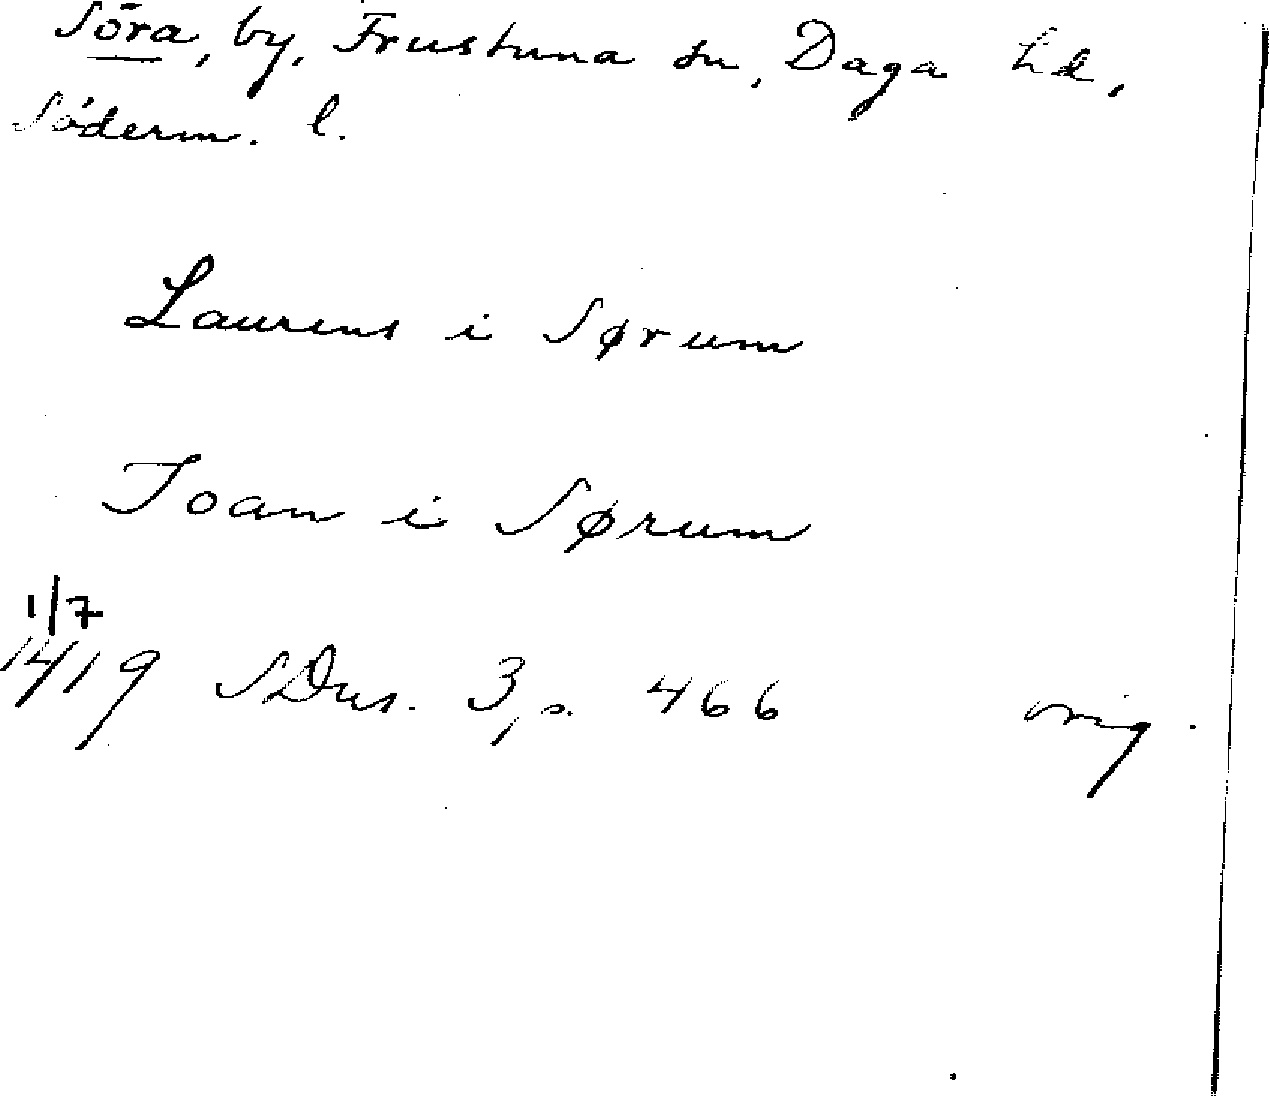 Söra, by, Frustuna sn, Daga hd,
Söderm. l.
Laurens i Sørum
Joan i Sørum
1/7
1419 SDns. 3, p. 466 orig.